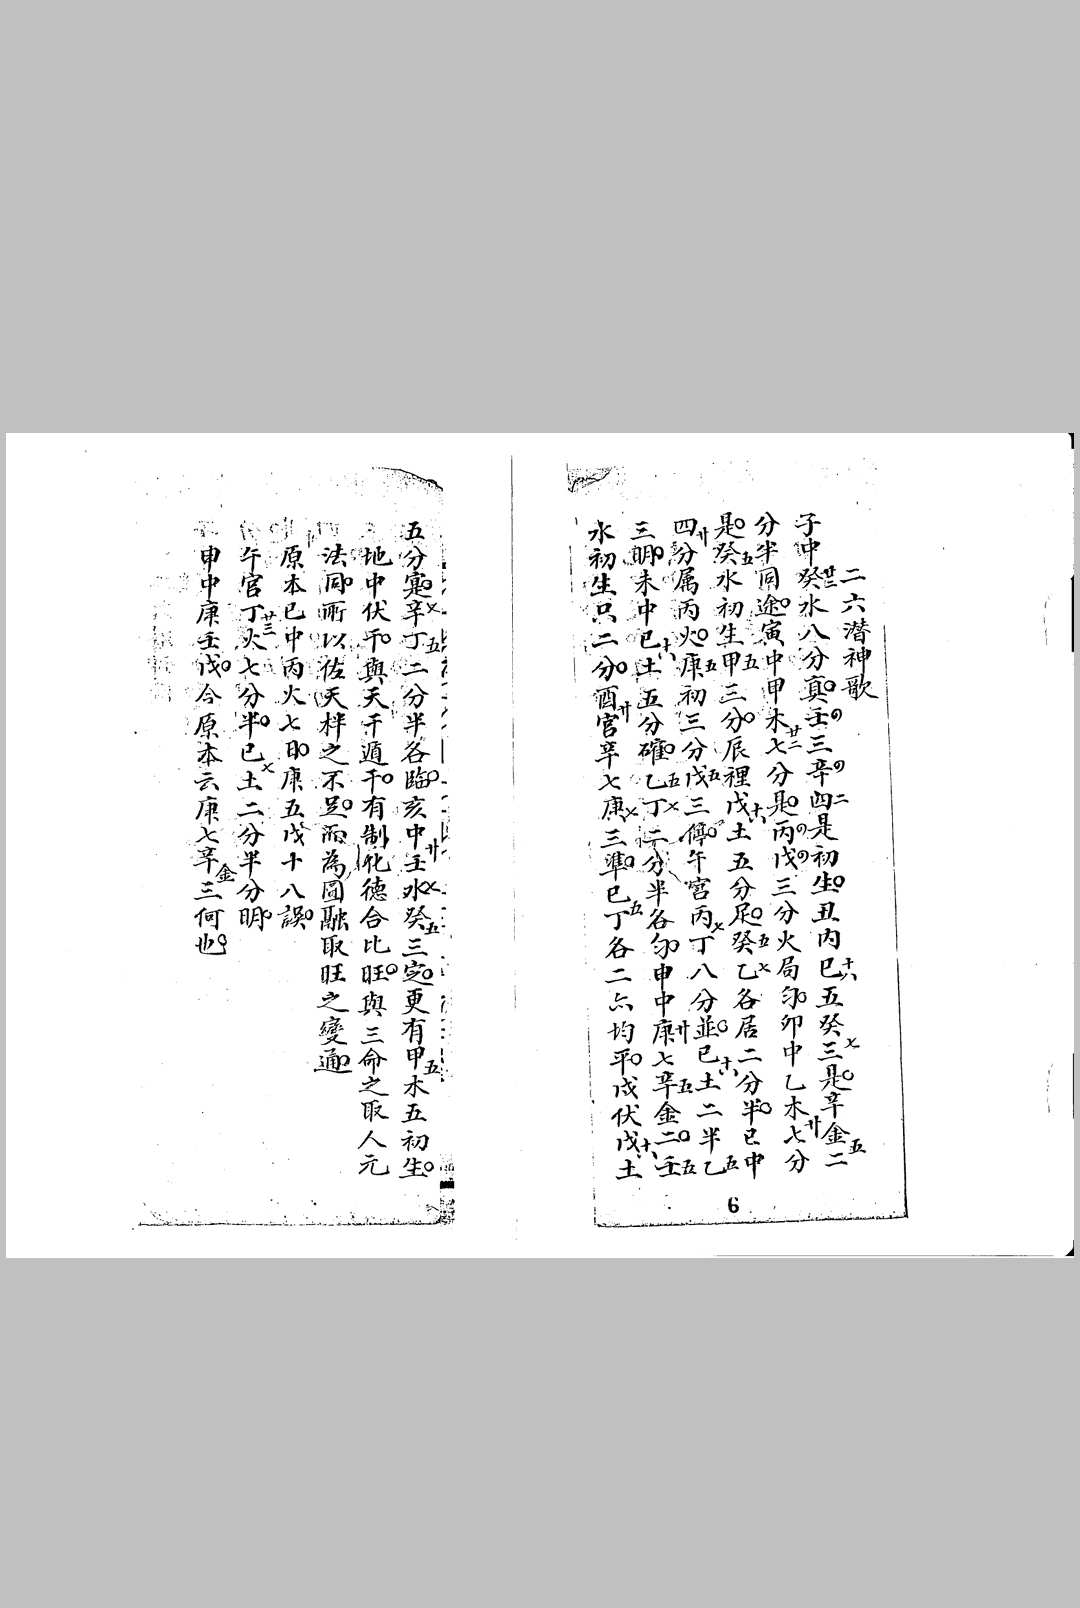 二六潛神歌
子中癸水八分真壬三辛四是初生丑內巳五癸三是辛金二
分半同途寅中甲木七分是丙戊三分火局勻卯中乙木七分
是癸水初生甲三分辰裡戊土五分足癸乙各居二分半巳中
四分属丙火庚初三分戊三停午宮丙丁八分並巳土二半乙
三明未中巳土五分確乙丁二分半各勻申中庚七辛金二壬
水初生只二分酉宮辛七庚三準巳丁各二六均平戌伏戊土
6
五分寔辛丁二分半各臨亥中壬水癸三定更有甲木五初生
地中伏干與天干遁干有制化德合比旺與三命之取人元
法同所以佐天柈之不足而為圖融取旺之變通
原本巳中丙火七日庚五戊十八誤
午宮丁火七分半巳土二分半分明
申中庚壬戊合原本云庚七辛三何也